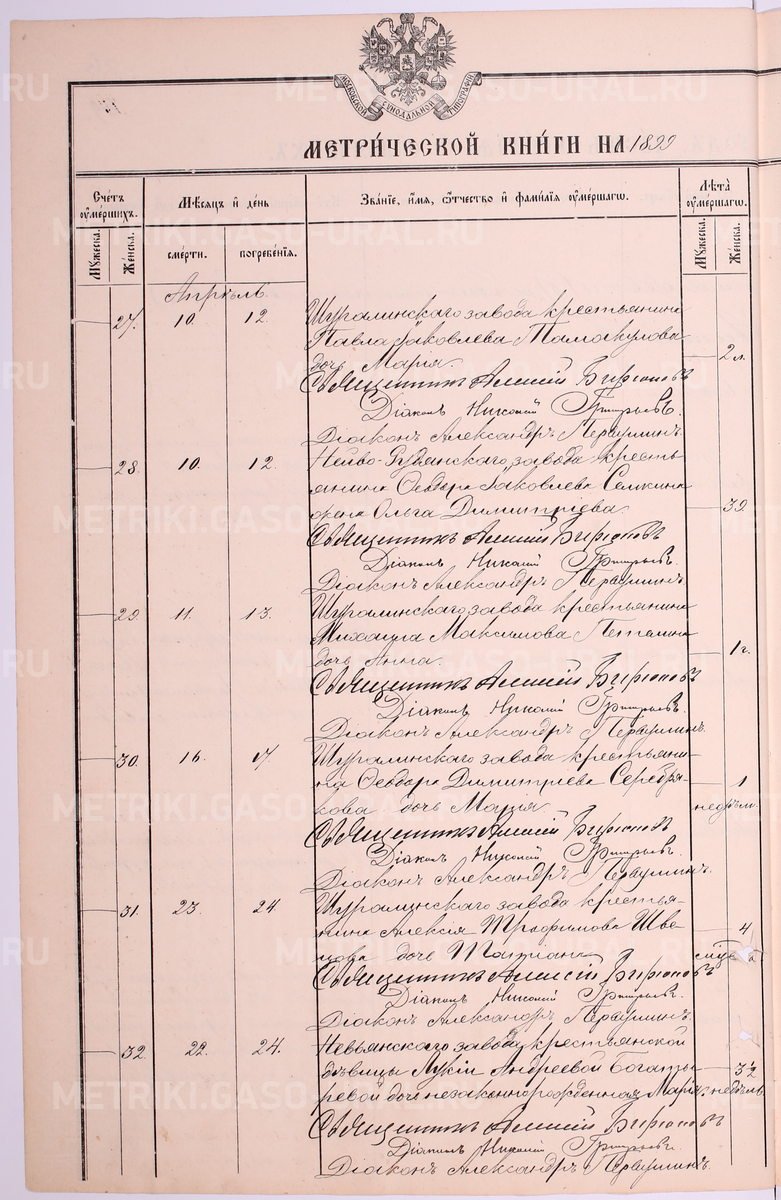 МОСКОВСКОЙ СѴНОДАЛЬНОЙ ТИПОГРАФІИ
МЕТРИ́ЧЕСКОЙ КНИ́ГИ НА 1899
Сче́тъ ᲂу҆ме́ршихъ.
Мѣ́сяцъ и҆ де́нь
Зва́нїе, и҆́мѧ, ѻ҆́тчество и҆ фами́лїѧ ᲂу҆ме́ршагѡ.
Лѣта̀ ᲂу҆ме́ршагѡ.
Мꙋ́жеска.
Же́нска.
сме́рти.
погребе́нїѧ.
Мꙋ́жеска.
Же́нска.
Апрѣль.
27. 10. 12. Шуралинскаго завода крестьянина
Павла Іаковлева Томокулова
дочь Марія. 2 л.
Священникъ Алексій Бирюковъ
Діаконъ Николай Григорьевъ.
Діаконъ Александръ Первушинъ.
28. 10. 12. Нейво-Рудянскаго завода кресть
янина Ѳеодора Іаковлева Семкина
жена Ольга Димитріева. 39.
Священникъ Алексій Бирюковъ
Діаконъ Николай Григорьевъ.
Діаконъ Александръ Первушинъ.
29. 11. 13. Шуралинскаго завода крестьянина
Михаила Максимова Петелина
дочь Анна. 1 г.
Священникъ Алексій Бирюковъ
Діаконъ Николай Григорьевъ.
Діаконъ Александръ Первушинъ.
30. 16. 17. Шуралинскаго завода крестьяни-
на Ѳеодора Димитріева Серебря- 1
кова дочь Марія недѣли.
Священникъ Алексій Бирюковъ
Діаконъ Николай Григорьевъ.
Діаконъ Александръ Первушинъ.
31. 23. 24. Шуралинскаго завода крестья-
нина Алексія Трофимова Шве- 4
цова дочь Татіана
Священникъ Алексій Бирюковъ
Діаконъ Николай Григорьевъ.
Діаконъ Александръ Первушинъ.
32. 22. 24. Невьянскаго завода крестьянской
дѣвицы Лукіи Андреевой Богаты- 3½
ревой дочь незаконнорожденная Марія. недѣль
Священникъ Алексій Бирюковъ
Діаконъ Николай Григорьевъ
Діаконъ Александръ Первушинъ.
METRIKI.GASO-URAL.RU